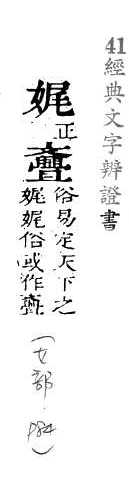 41經典文字辨證書
娓正亹俗易定天下之
娓娓俗或作
(女部. P84)